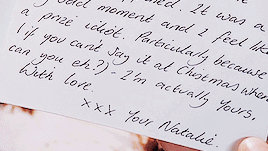 ened. It was a
moment and I feel like
a prize idiot. Particularly because
(if you can't say it at Christmas when
can you eh?) - I'm actually yours.
With love.
xxx Your Natalie.